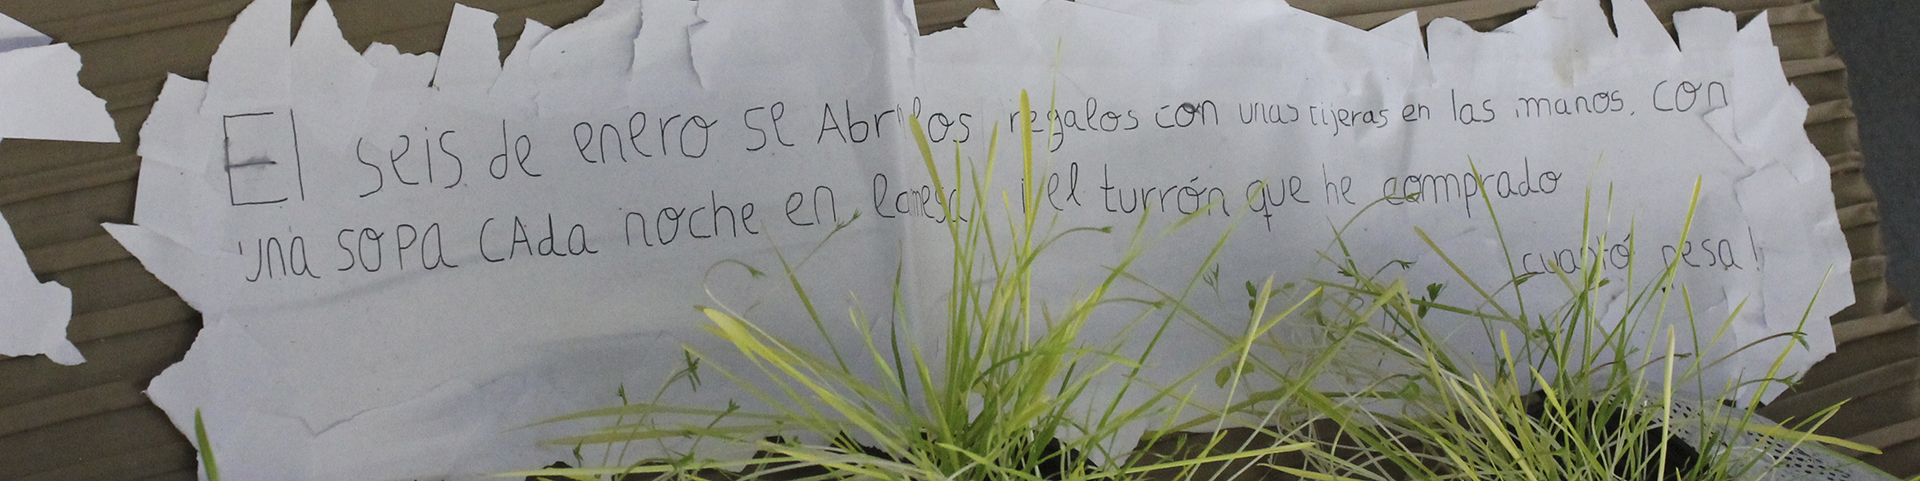 El seis de enero se Abr los regalos con unas tijeras en las manos. con
una SOPA CAda noche en la mesa ¡ el turrón que he comprado
cuanto pesa!